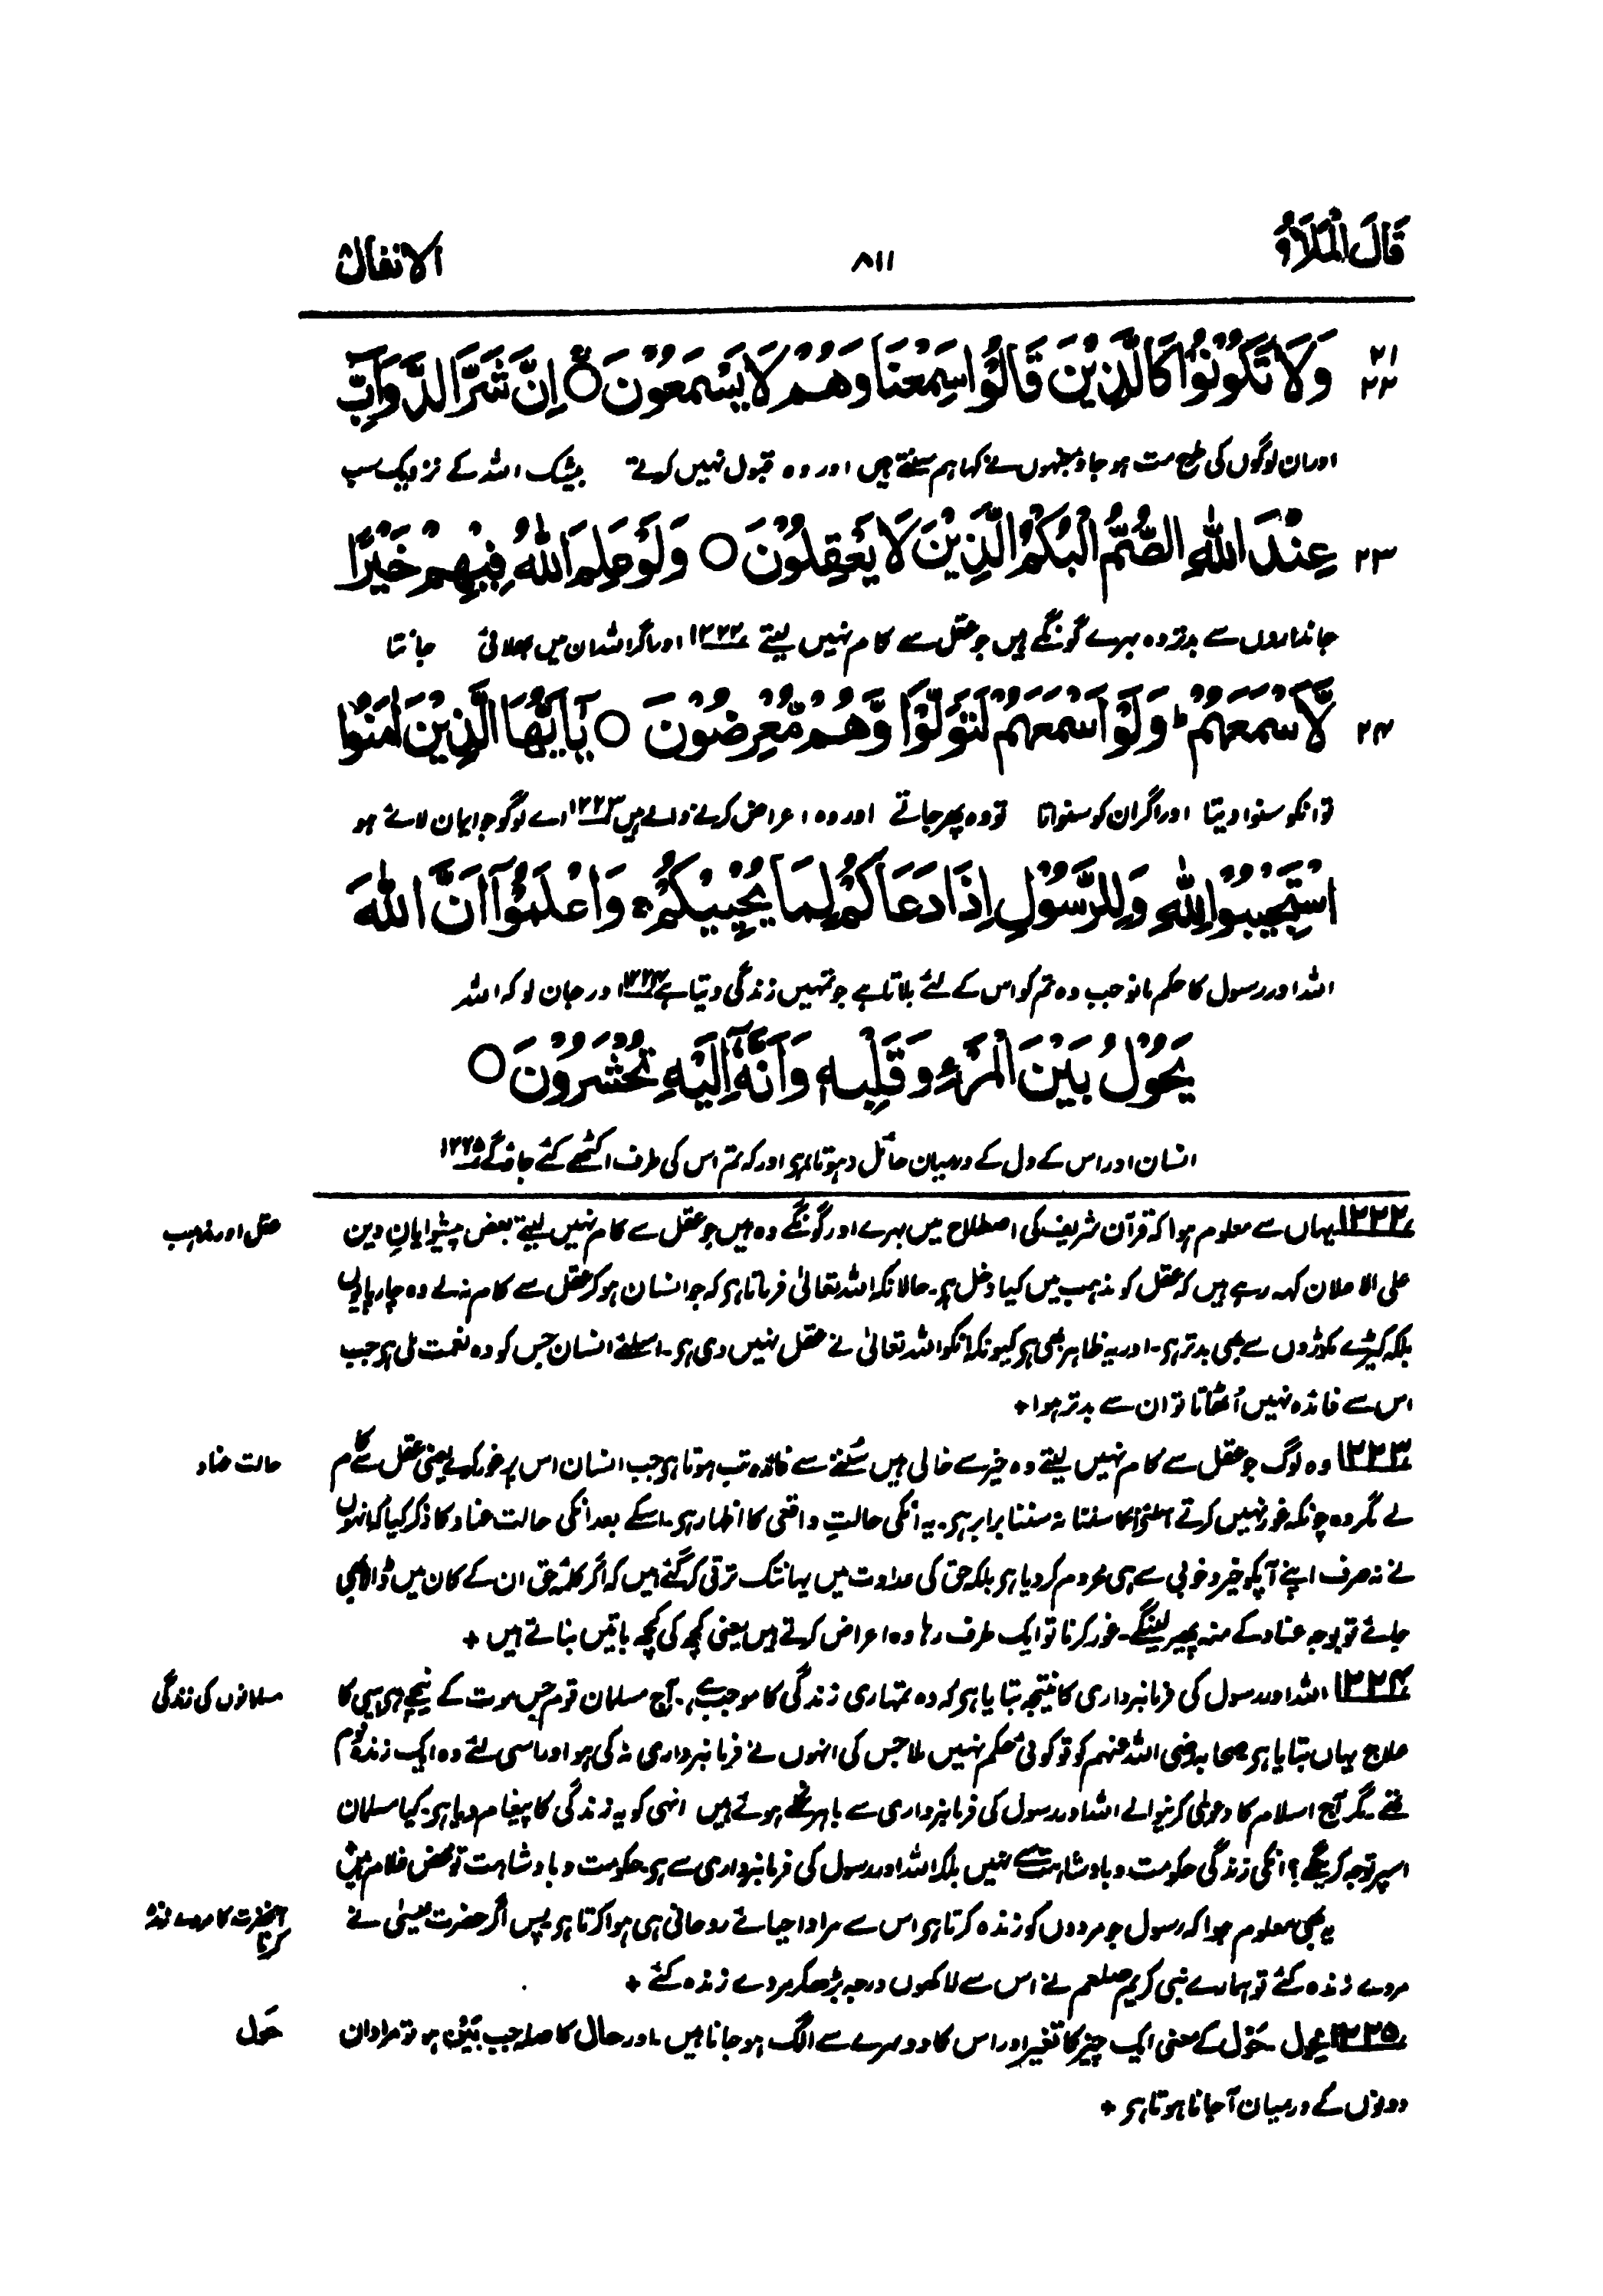 قَالَ الْمَلَاُ
۸۱۱
الانفال
۲۱
۲۲
وَلَا تَكُوْنُوْا كَالَّذِيْنَ قَالُوْا سَمِعْنَا وَهُمْ لَا يَسْمَعُوْنَ ○ اِنَّ شَرَّ الدَّوَآبِّ
اور ان لوگوں کی طرح مت ہو جاؤ جنہوں نے کہا ہم سنتے ہیں اور وہ قبول نہیں کرتے بیشک اللہ کے نزدیک سب
۲۳
عِنْدَ اللّٰهِ الصُّمُّ الْبُكْمُ الَّذِيْنَ لَا يَعْقِلُوْنَ ○ وَلَوْ عَلِمَ اللّٰهُ فِيْهِمْ خَيْرًا
جانداروں سے بدتر وہ بہرے گونگے ہیں جو عقل سے کام نہیں لیتے ۱۲۲۲ اور اگر اللہ ان میں بھلائی جانتا
۲۴
لَّاَسْمَعَهُمْ ؕ وَلَوْ اَسْمَعَهُمْ لَتَوَلَّوْا وَّهُمْ مُّعْرِضُوْنَ ○ يٰٓاَيُّهَا الَّذِيْنَ اٰمَنُوا
تو انکو سنوا دیتا اور اگر ان کو سنواتا تو وہ پھر جاتے اور وہ اعراض کرنے والے ہیں ۱۲۲۳ اے لوگو جو ایمان لائے ہو
اسْتَجِيْبُوْا لِلّٰهِ وَلِلرَّسُوْلِ اِذَا دَعَاكُمْ لِمَا يُحْيِيْكُمْ ۚ وَاعْلَمُوْٓا اَنَّ اللّٰهَ
اللہ اور رسول کا حکم مانو جب وہ تم کو اس کے لئے بلاتا ہے جو تمہیں زندگی دیتا ہے ۱۲۲۴ اور جان لو کہ اللہ
يَحُوْلُ بَيْنَ الْمَرْءِ وَقَلْبِهٖ وَاَنَّهٗٓ اِلَيْهِ تُحْشَرُوْنَ ○
انسان اور اس کے دل کے درمیان حائل ہوتا ہے اور کہ تم اس کی طرف اکٹھے کئے جاؤگے ۱۲۲۵
۱۲۲۲ یہاں سے معلوم ہوا کہ قرآن شریف کی اصطلاح میں بہرے اور گونگے وہ ہیں جو عقل سے کام نہیں لیتے بعض پیشوایانِ دین
عقل اور مذہب
علی الاعلان کہہ رہے ہیں کہ عقل کو مذہب میں کیا دخل ہے۔ حالانکہ اللہ تعالیٰ فرماتا ہے کہ جو انسان ہو کر عقل سے کام نہ لے وہ چارپایوں
بلکہ کیڑے مکوڑوں سے بھی بدتر ہے۔ اور یہ ظاہر بھی ہے کیونکہ انکو اللہ تعالیٰ نے عقل نہیں دی ہے۔ اسلئے انسان جس کو وہ نعمت ملی ہے جب
اس سے فائدہ نہیں اُٹھاتا تو ان سے بدتر ہوا +
۱۲۲۳ وہ لوگ جو عقل سے کام نہیں لیتے وہ خیر سے خالی ہیں سُننے سے فائدہ تب ہوتا ہے جب انسان اس پر غور کرے یعنی عقل سے کام
حالت عناد
لے مگر وہ چونکہ غور نہیں کرتے اسلئے انکا سننا نہ سننا برابر ہے۔ یہ انکی حالتِ واقعی کا اظہار ہے۔ اسکے بعد انکی حالت عناد کا ذکر کیا کہ انہوں
نے نہ صرف اپنے آپکو خیر و خوبی سے ہی محروم کر دیا ہے بلکہ حق کی عداوت میں یہانتک ترقی کر گئے ہیں کہ اگر کلمہ حق ان کے کان میں ڈالا بھی
جائے تو بوجہ عناد کے منہ پھیر لینگے۔ غور کرنا تو ایک طرف رہا وہ اعراض کرتے ہیں یعنی کچھ کی کچھ باتیں بناتے ہیں +
۱۲۲۴ اللہ اور رسول کی فرمانبرداری کا نتیجہ بتایا ہے کہ وہ تمہاری زندگی کا موجب ہے۔ آج مسلمان قوم جس موت کے نیچے ہے اسی کا
مسلمانوں کی زندگی
علاج یہاں بتایا ہے صحابہ رضی اللہ عنہم کو تو کوئی حکم نہیں ملا جس کی انہوں نے فرمانبرداری نہ کی ہو اور اسی لئے وہ ایک زندہ قوم
تھے۔ مگر آج اسلام کا دعویٰ کرنیوالے اللہ اور رسول کی فرمانبرداری سے باہر نکلے ہوئے ہیں انہی کو یہ زندگی کا پیغام دیا ہے کیا مسلمان
اسپر توجہ کرینگے؟ انکی زندگی حکومت و بادشاہت سے نہیں بلکہ اللہ اور رسول کی فرمانبرداری سے ہے حکومت و بادشاہت تو محض غلام ہیں
یہ بھی معلوم ہوا کہ رسول جو مردوں کو زندہ کرتا ہے اس سے مراد احیائے روحانی ہی ہوا کرتا ہے پس اگر حضرت عیسیٰ نے
آنحضرت کا مردے زندہ
کرنا
مردے زندہ کئے تو ہمارے نبی کریم صلعم نے اس سے لاکھوں درجہ بڑھکر مردے زندہ کئے +
۱۲۲۵ یحول۔ حَوْل کے معنی ایک چیز کا تغیر اور اس کا دوسرے سے الگ ہو جانا ہیں۔ اور حال کا صلہ جب بَیْنَ ہو تو مراد ان
حَول
دونوں کے درمیان آجانا ہوتا ہے +